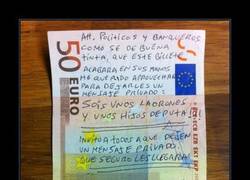 50 EURO
Att. Políticos y Banqueros
COMO SE DE BUENA
TINTA, QUE ESTE BILLETE
ACABARA EN SUS MANOS
HE QUERIDO APROVECHAR
PARA DEJARLES UN
MENSAJE PRIVADO:
SOIS UNOS LADRONES
Y UNOS HIJOS DEPUTA!
INVITO A TODOS A QUE DEJEN
UN MENSAJE PRIVADO
QUE SEGURO LES LLEGARA!